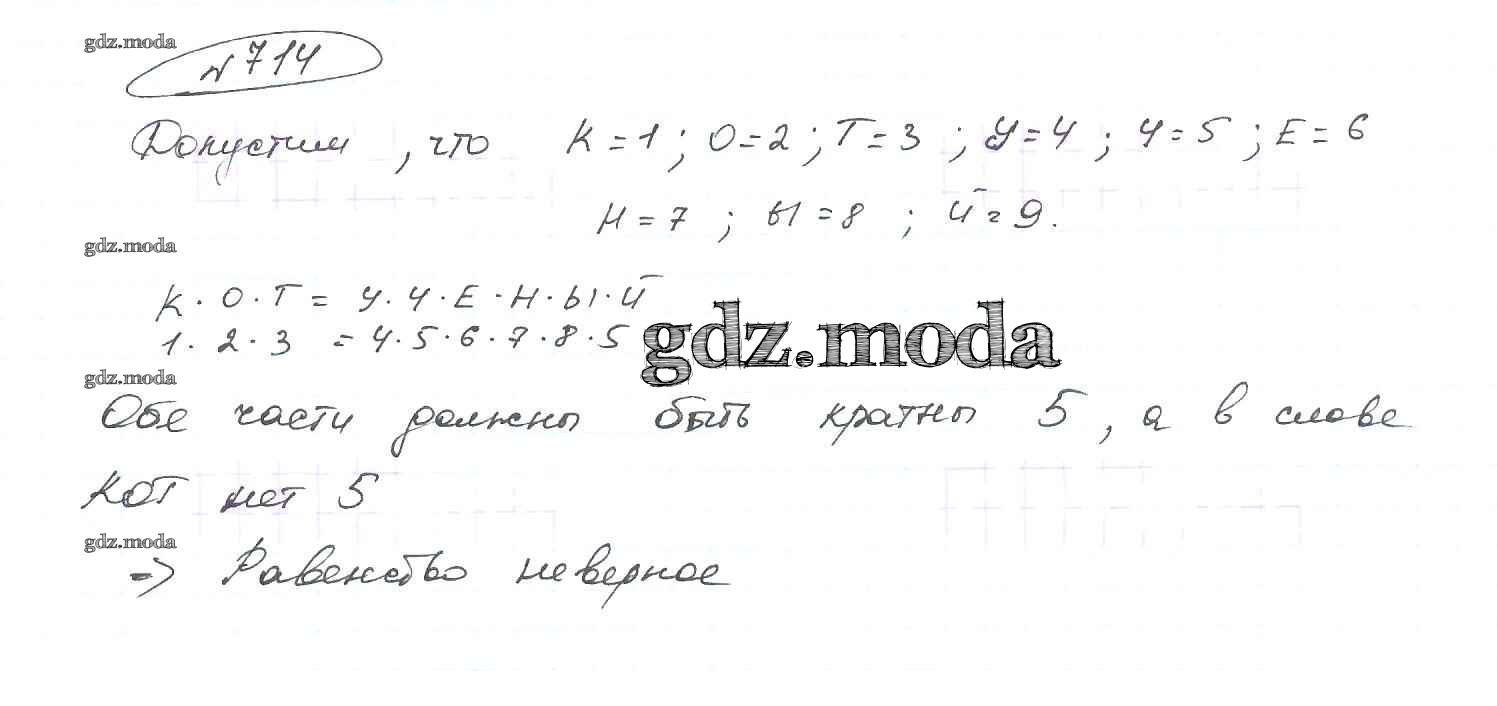 gdz.moda
№ 714
Допустим, что К = 1; О = 2; Т = 3; У = 4; Ч = 5; Е = 6
Н = 7; Ы = 8; Й = 9.
gdz.moda
К · О · Т = У · Ч · Е · Н · Ы · Й
1 · 2 · 3 = 4 · 5 · 6 · 7 · 8 · 5
gdz.moda
gdz.moda
Обе части должны быть кратны 5, а в слове
КОТ нет 5
gdz.moda
=> Равенство неверное